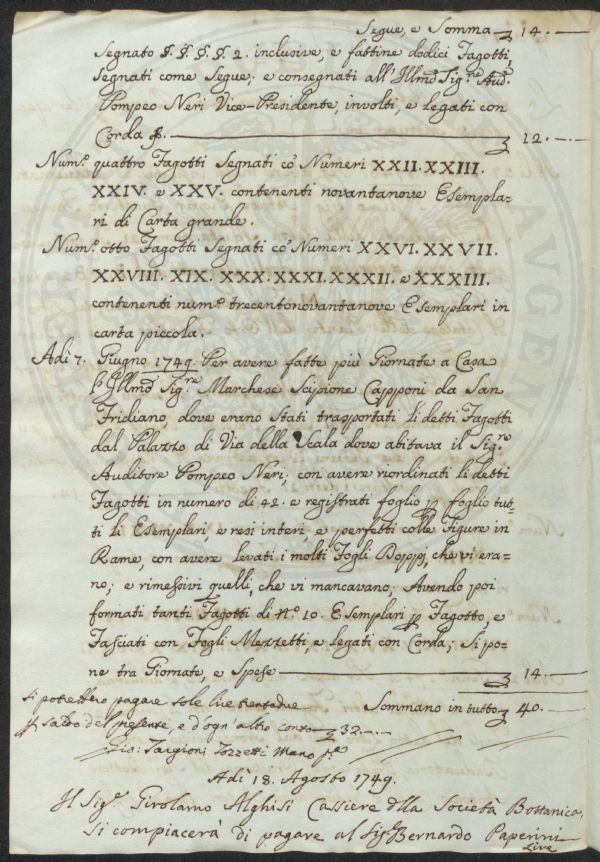 Segue, e Somma 14. —
Segnato §. §. §. §. 2. inclusive, e fattine dodici Fagotti,
segnati come segue; e consegnati all'Illmo Sigre Audre
Pompeo Neri Vice-Presidente, involti, e legati con
Corda 12. —
Numo quattro Fagotti Segnati co' Numeri XXII. XXIII.
XXIV. e XXV. contenenti novantanove Esempla=
ri di Carta grande.
Numo otto Fagotti Segnati co' Numeri XXVI. XXVII.
XXVIII. XIX. XXX. XXXI. XXXII. e XXXIII.
contenenti numo trecentonovantanove Esemplari in
carta piccola.
Adi 7. Giugno 1749. Per avere fatte più Giornate a Casa
l'Illmo Sigre Marchese Scipione Capponi da San
Fridiano, dove erano Stati trasportati li detti Fagotti
dal Palazzo di Via della Scala dove abitava il Sigre
Auditore Pompeo Neri; con avere riordinati li detti
Fagotti in numero di 42. e registrati foglio p foglio tut=
ti li Esemplari, e resi interi, e perfetti colle Figure in
Rame, con avere levati i molti Fogli Doppj, che vi era=
no; e rimessivi quelli, che vi mancavano; Avendo poi
formati tanti Fagotti di No 10. Esemplari p Fagotto, e
Fasciati con Fogli Mezzetti, e legati con Corda; Si po=
ne tra Giornate, e Spese 14. —
Sommano in tutto 40. —
Si potrebbero pagare sole lire trentadue
p saldo del presente, e d'ogn'altro conto 32. —
Gio: Targioni Tozzetti Mano pa
Adi 18. Agosto 1749.
Il Sigr Girolamo Alghisi Cassiere dlla Società Bottanica,
si compiacerà di pagare al Sigr Bernardo Paperini
Lire